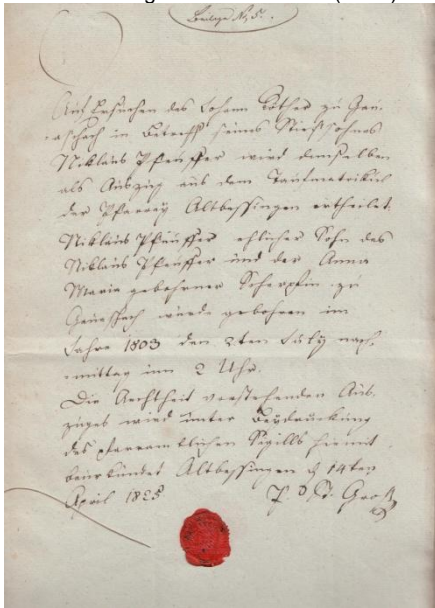 Beilage No. 5.
Auf Ersuchen des Johann Köther zu Gau-
aschach in Betreff seines Stiefsohnes
Niklaus Pfeuffer wird demselben
als Auszug aus dem Taufmatrikel
der Pfarrey Altbessingen ertheilet.
Niklaus Pfeuffer ehlicher Sohn des
Niklaus Pfeuffer und der Anna
Maria gebohrner zu
wurde gebohren im
Jahre 1803 den 2ten July nach-
mittag um 2 Uhr.
Die Aechtheit vorstehenden Aus-
zuges wird unter Beydruckung
des pfarramtlichen Sigills hiemit
beurkundet Altbessingen d 14ten
April 1825
Groß